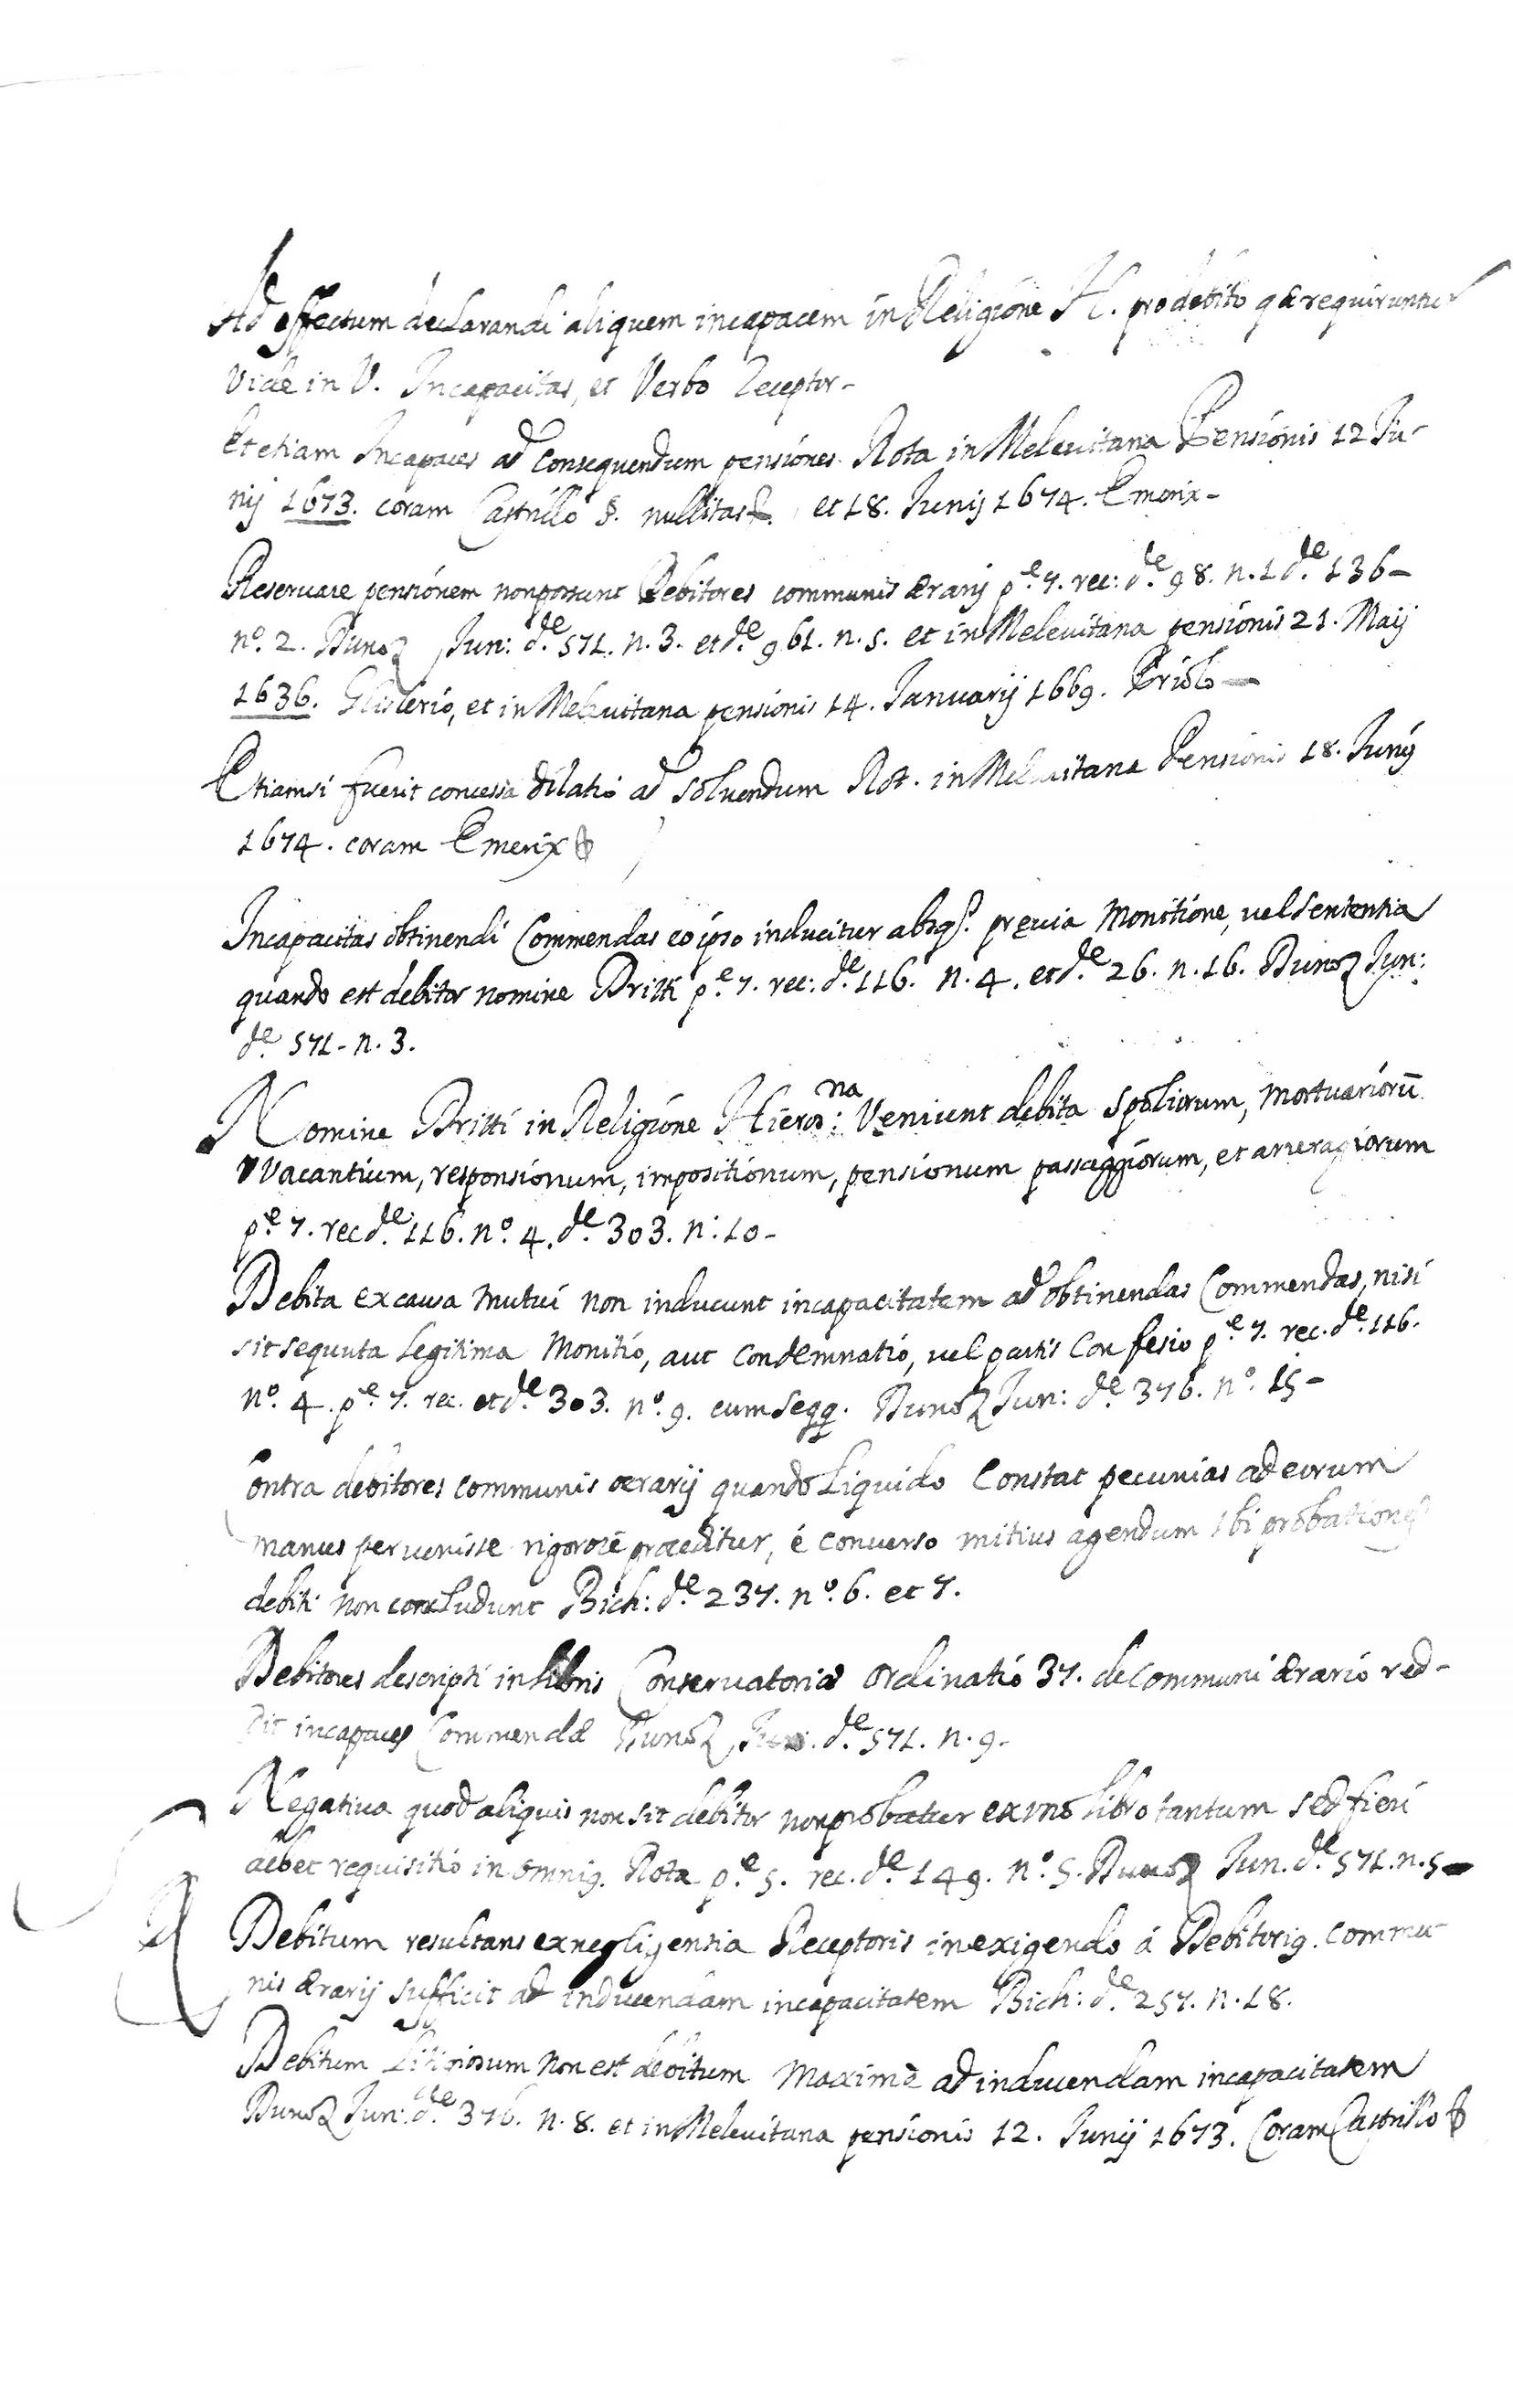 Ad effectum declarandi aliquem incapacem in Religione H. pro debito quæ requiruntur
Vide in V. Incapacitas, et Verbo Receptor-
Et etiam Incapaces ad Consequendum pensiones. Rota in Meleuitana Pensionis 12 Ju-
nij 1673. coram Castrillo §. nullitas &. et 18. Junij 1674. Emerix-
Reseruare pensionem non possunt Debitores communis ærarij p.e 7. rec: d.e 98. n. 1 d.e 136-
n.o 2. Dunoz Jun: d.e 571. n. 3. et d.e 961. n. 5. et in Meleuitana pensionis 21. Maij
1636. Ghislerio, et in Meleuitana pensionis 14. Januarij 1669. Priolo-
Etiamsi fuerit concessa dilatio ad Soluendum Rot. in Meleuitana Pensionis 18. Junij
1674. coram Emerix &
Incapacitas obtinendi Commendas eo ipso inducitur absq. preuia Monitione, uel Sententia
quando est debitor nomine Dritti p.e 7. rec: d.e 116. n. 4. et d.e 26. n. 16. Dunoz Jun:
d.e 571- n. 3.
Nomine Dritti in Religione Hieros: na Veniunt debita Spoliorum, Mortuariorū
Vacantium, responsionum, impositionum, pensionum passaggiorum, et arreragiorum
p.e 7. rec d.e 116. n.o 4. d.e 303. n: 10-
Debita ex causa Mutui non inducunt incapacitatem ad obtinendas Commendas, nisi
sit sequuta Legitima Monitio, aut Condemnatio, uel partis Confesio p.e 7. rec. d.e 116.
n.o 4. p.e 7. rec. et d.e 303. n.o 9. cum seqq. Dunoz Jun: d.e 376. n.o 15-
Contra debitores communis ærarij quando Liquido Constat pecunias ad eorum
manus peruenisse rigorosè proceditur, è conuerso mitius agendum Ubi probationes
debiti non concludunt Bich: d.e 237. n.o 6. et 7.
Debitores descripti in libris Conseruatoriæ Ordinatio 37. de Communi ærario red-
dit incapaces Commendæ Dunoz Jun: d.e 571. n. 9-
Negatiua quod aliquis non sit debitor non probatur ex uno libro tantum sed fieri
debet requisitio in omnig. Rota p.e 5. rec. d.e 149. n.o 5. Dunoz Jun. d.e 571. n. 5-
Debitum resultans ex negligentia Receptoris in exigendo á Debitorig. Commu-
nis ærarij sufficit ad inducendam incapacitatem Bich: d.e 257. n. 18.
Debitum Litigiosum non est debitum Maximè ad inducendam incapacitatem
Dunoz Jun: d.e 376. n. 8. et in Meleuitana pensionis 12. Junij 1673. Coram Castrillo &